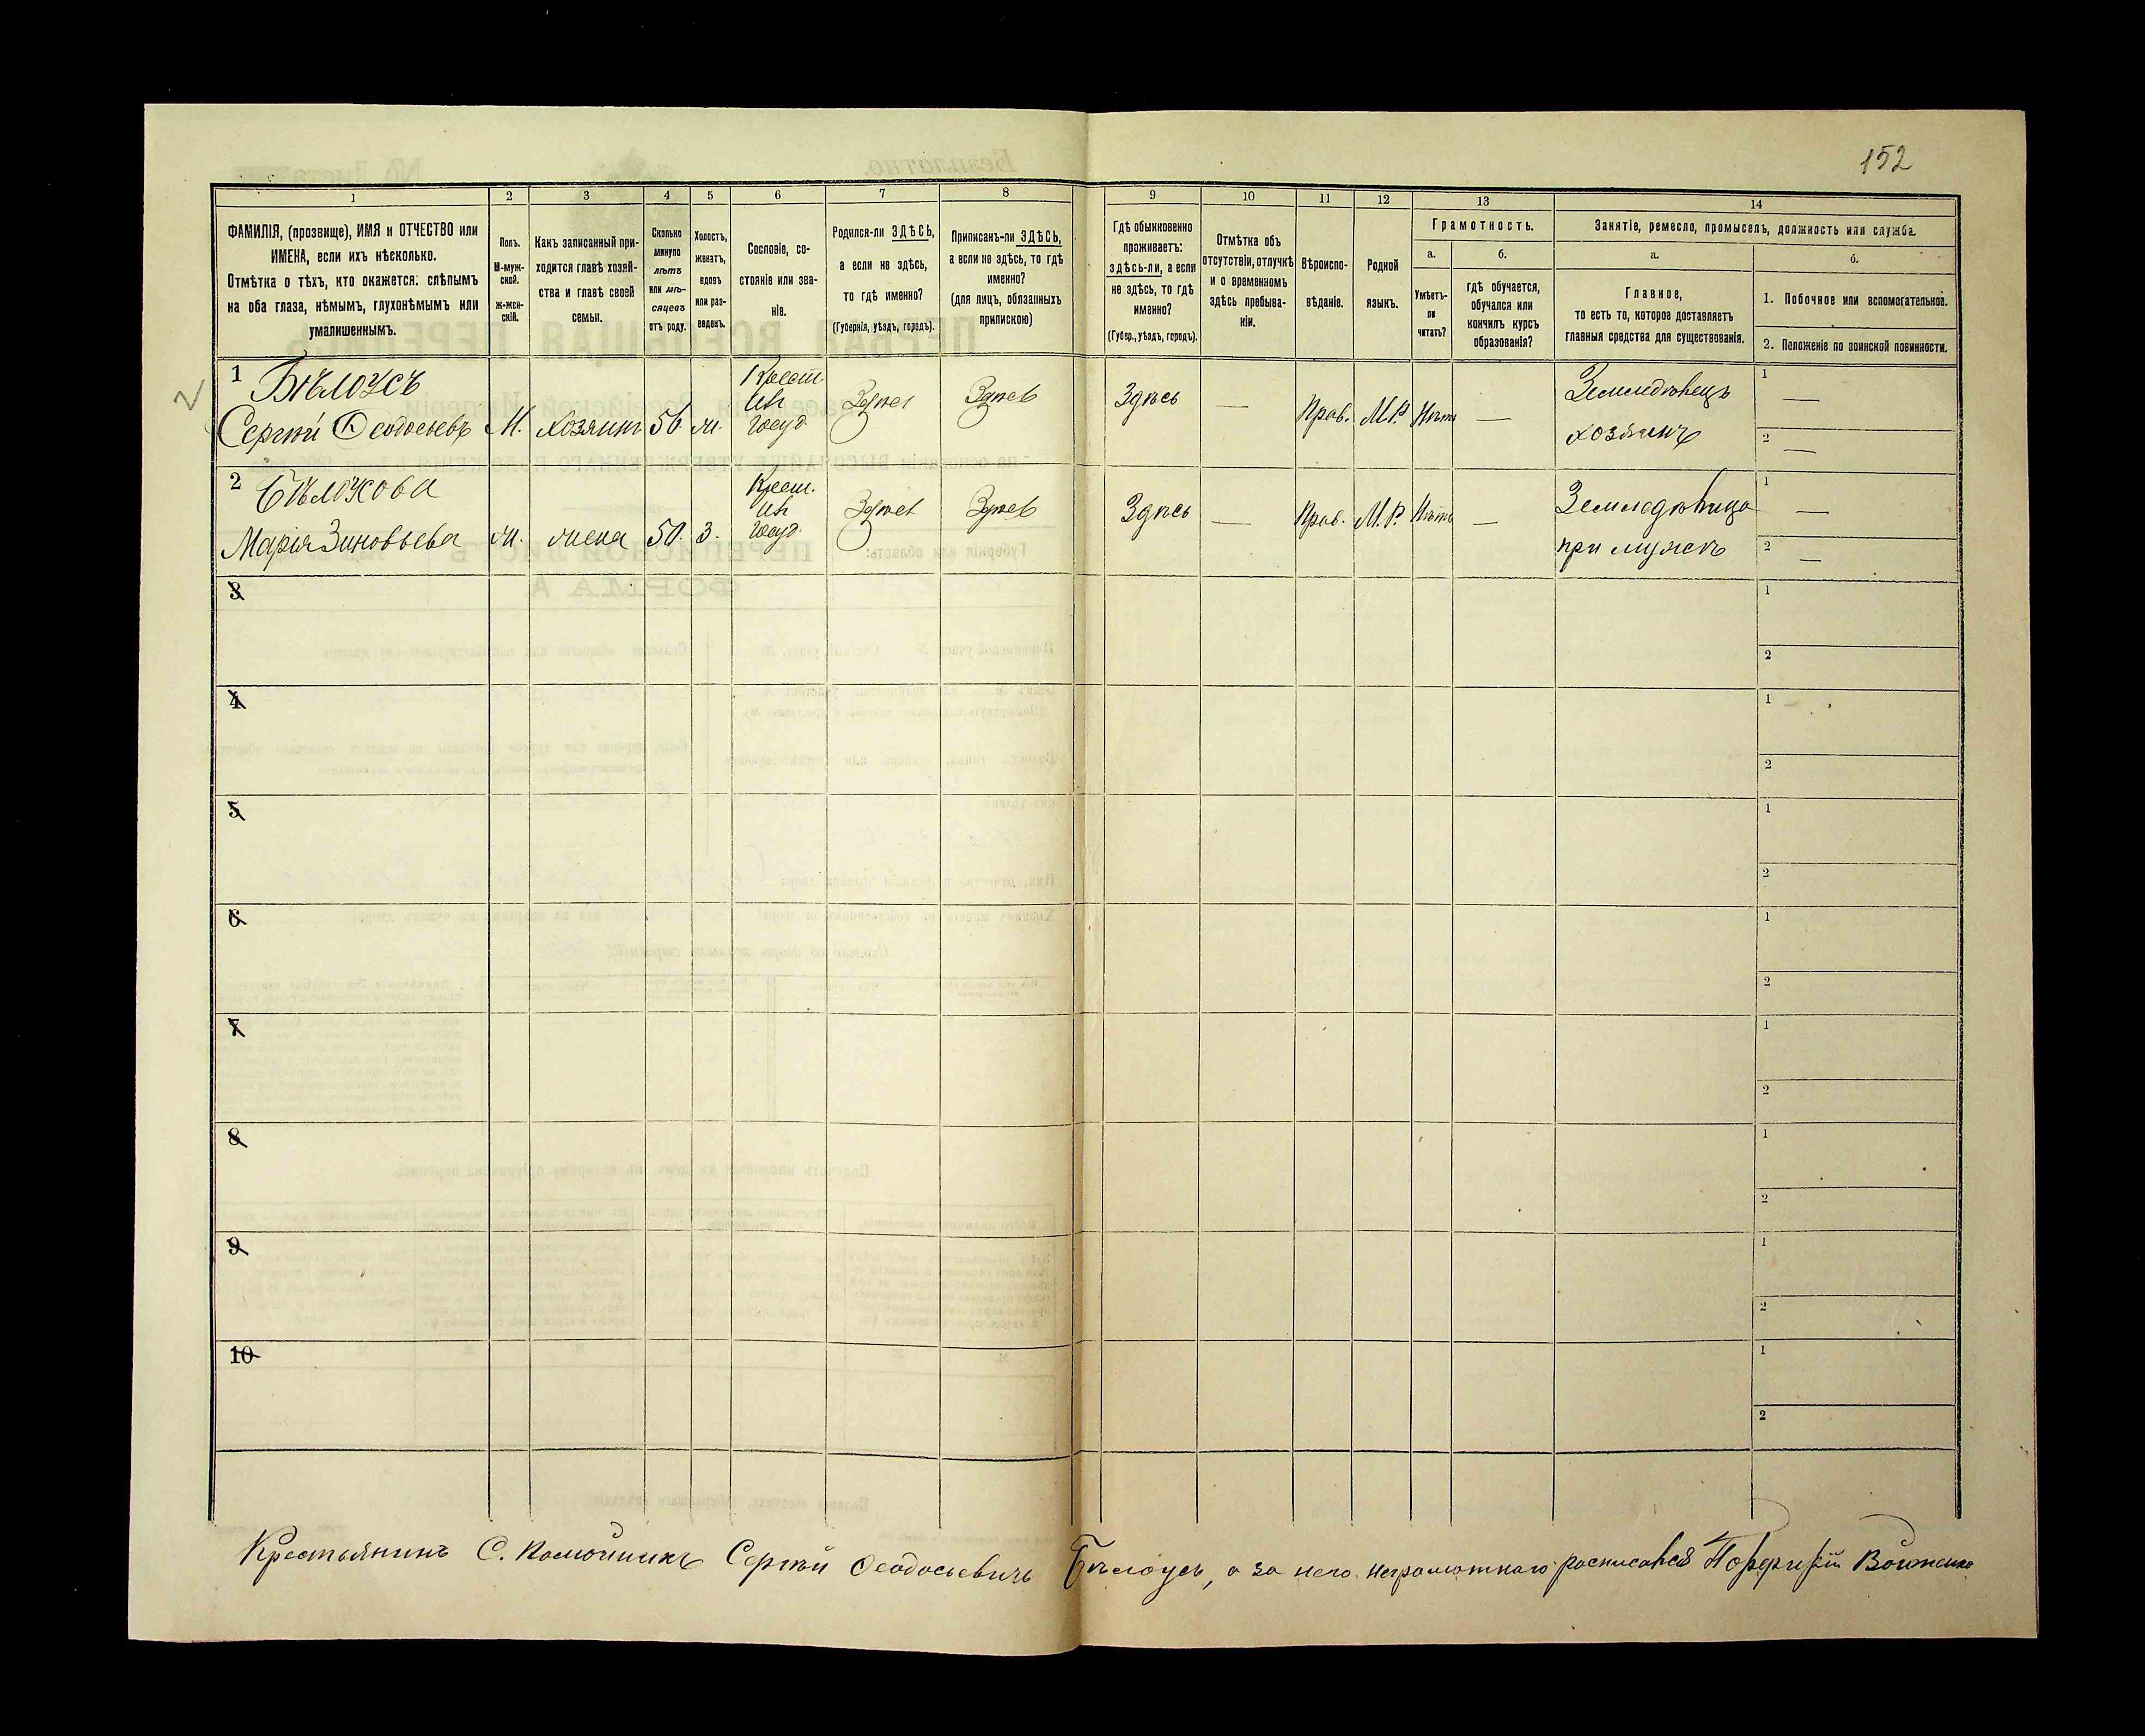 152
1 2 3 4 5 6 7 8 9 10 11 12 13 14
ФАМИЛІЯ, (прозвище), ИМЯ и ОТЧЕСТВО или
ИМЕНА, если ихъ нѣсколько.
Отмѣтка о тѣхъ, кто окажется: слѣпымъ
на оба глаза, нѣмымъ, глухонѣмымъ или
умалишеннымъ.
Полъ.
М-муж-
ской.
ж-жен-
скій.
Какъ записанный при-
ходится главѣ хозяй-
ства и главѣ своей
семьи.
Сколько
минуло
лѣтъ
или мѣ-
сяцевъ
отъ роду.
Холостъ,
женатъ,
вдовъ
или раз-
веденъ.
Сословіе, со-
стояніе или зва-
ніе.
Родился-ли ЗДѢСЬ,
а если не здѣсь,
то гдѣ именно?
(Губернія, уѣздъ, городъ).
Приписанъ-ли ЗДѢСЬ,
а если не здѣсь, то гдѣ
именно?
(для лицъ, обязанныхъ
припискою)
Гдѣ обыкновенно
проживаетъ:
здѣсь-ли, а если
не здѣсь, то гдѣ
именно?
(Губер., уѣздъ, городъ).
Отмѣтка объ
отсутствіи, отлучкѣ
и о временномъ
здѣсь пребыва-
ніи.
Вѣроиспо-
вѣданіе.
Родной
языкъ.
Грамотность.
а.
Умѣетъ-
ли
читать?
б.
гдѣ обучается,
обучался или
кончилъ курсъ
образованія?
Занятіе, ремесло, промыселъ, должность или служба.
а.
Главное,
то есть то, которое доставляетъ
главныя средства для существованія.
б.
1. Побочное или вспомогательное.
2. Положеніе по воинской повинности.
1 Бѣлоусъ
Сергѣй Ѳеодосьевъ М. хозяинъ 56 ж. Крест. изъ госуд. Здѣсь Здѣсь Здѣсь — Прав. М.Р. Нѣтъ — Земледѣлецъ хозяинъ 1 — 2 —
2 Бѣлоусова
Марія Зиновьева ж. жена 50. З. Крест. изъ госуд. Здѣсь Здѣсь Здѣсь — Прав. М.Р. Нѣтъ — Земледѣлица при мужѣ 1 — 2 —
3 1
2
4 1
2
5 1
2
6 1
2
7 1
2
8 1
2
9 1
2
10 1
2
Крестьянинъ С. Сергѣй Ѳеодосьевичъ Бѣлоусъ, а за него неграмотнаго росписался Порфирій